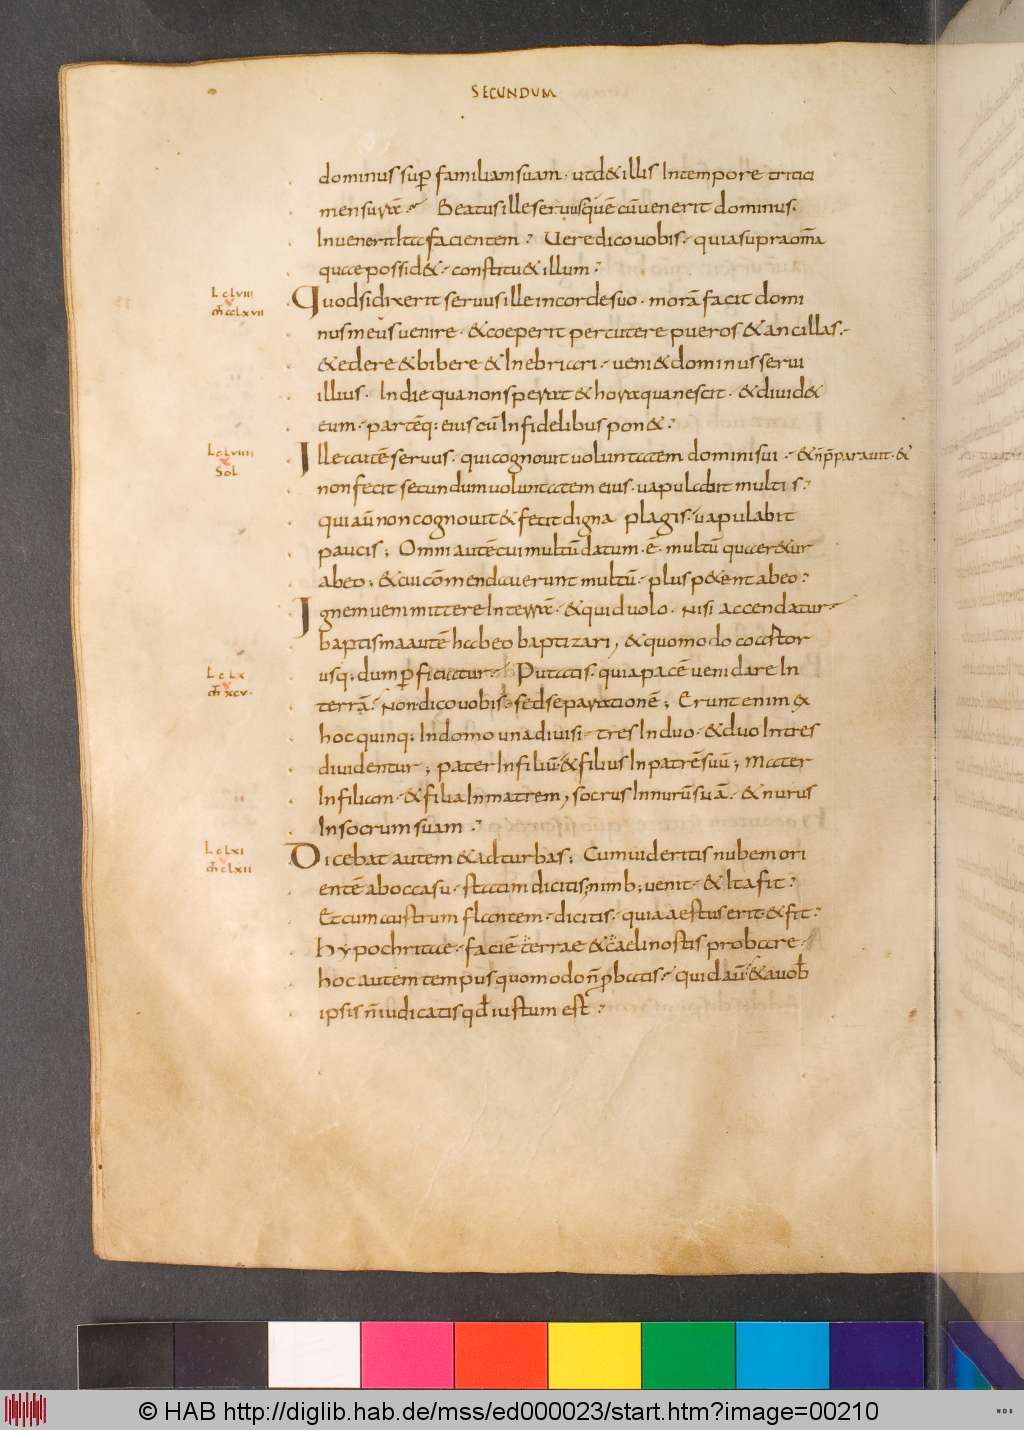 SECUNDUM
dominus sup̄ familiam suam · ut d& illis In tempore tritici
mensuram · Beatus ille seruus quē cū uenerit dominus·
Inuenerit Ita facientem : Uere dico uobis · quia supra om̄a
quae possid& · constitu& illum :
L cLVIII
m̄ ccLXVII
Quod si dixerit seruus ille in corde suo · morā facit domi
nus meus uenire · & coeperit percutere pueros & ancillas ·
& edere & bibere & Inebriari · ueni& dominus serui
illius · In die qua non sperat & hora qua nescit · & diuid&
eum · partēq; eius cū Infidelibus pon& :
L cLVIIII
Sol
Ille autē seruus · qui cognouit uoluntatem domini sui · & n̄ p̄parauit · &
non fecit secundum uoluntatem eius · uapulabit multis :
qui aū non cognouit & fecit digna plagis · uapulabit
paucis ; Omni autē cui multū datum · ē · multū quaer&ur
ab eo ; & cui cōmendauerunt multū · plus p&ent ab eo :
Ignem ueni mittere In terrā · & quid uolo · Nisi accendatur
baptisma autē habeo baptizari , & quomodo coastor
L cLX
m̄ xcv ·
usq; dum p̄ficiatur · Putatis · quia pacē ueni dare In
terrā · Non dico uobis · sed separationē ; Erunt enim ex
hoc quinq; In domo una diuisi · tres In duo · & duo In tres
diuidentur ; pater In filiū & filius In patrē suū ; mater
In filiam · & filia In matrem , socrus In nurū suā · & nurus
In socrum suam :
L cLXI
m̄ cLXII
Dicebat autem & ad turbas ; Cum uideritis nubem ori
entē ab occasu · statim dicitis ; nimb; uenit · & Ita fit :
Et cum austrum flantem · dicitis · quia aestus erit · & fit :
Hypochritae · faciē terrae & caeli nostis probare ·
hoc autem tempus quomodo n̄ p̄batis · Quid aū & a uob̄
ipsis n̄ iudicatis qd̄ iustum est :
© HAB http://diglib.hab.de/mss/ed000023/start.htm?image=00210
WDB